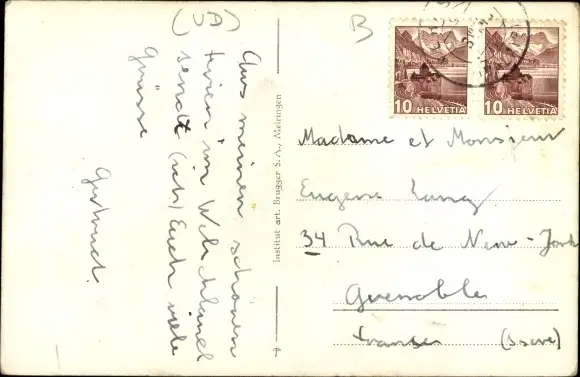 Aus meinen schönen
Ferien im Welschland
sende (ich) Euch viele
Grüsse
Gertrud.
Institut art. Brugger S. A., Meiringen
B
10 HELVETIA
10 HELVETIA
Madame et Monsieur
Eugene
34 Rue de New-York
Grenoble
(Isere)